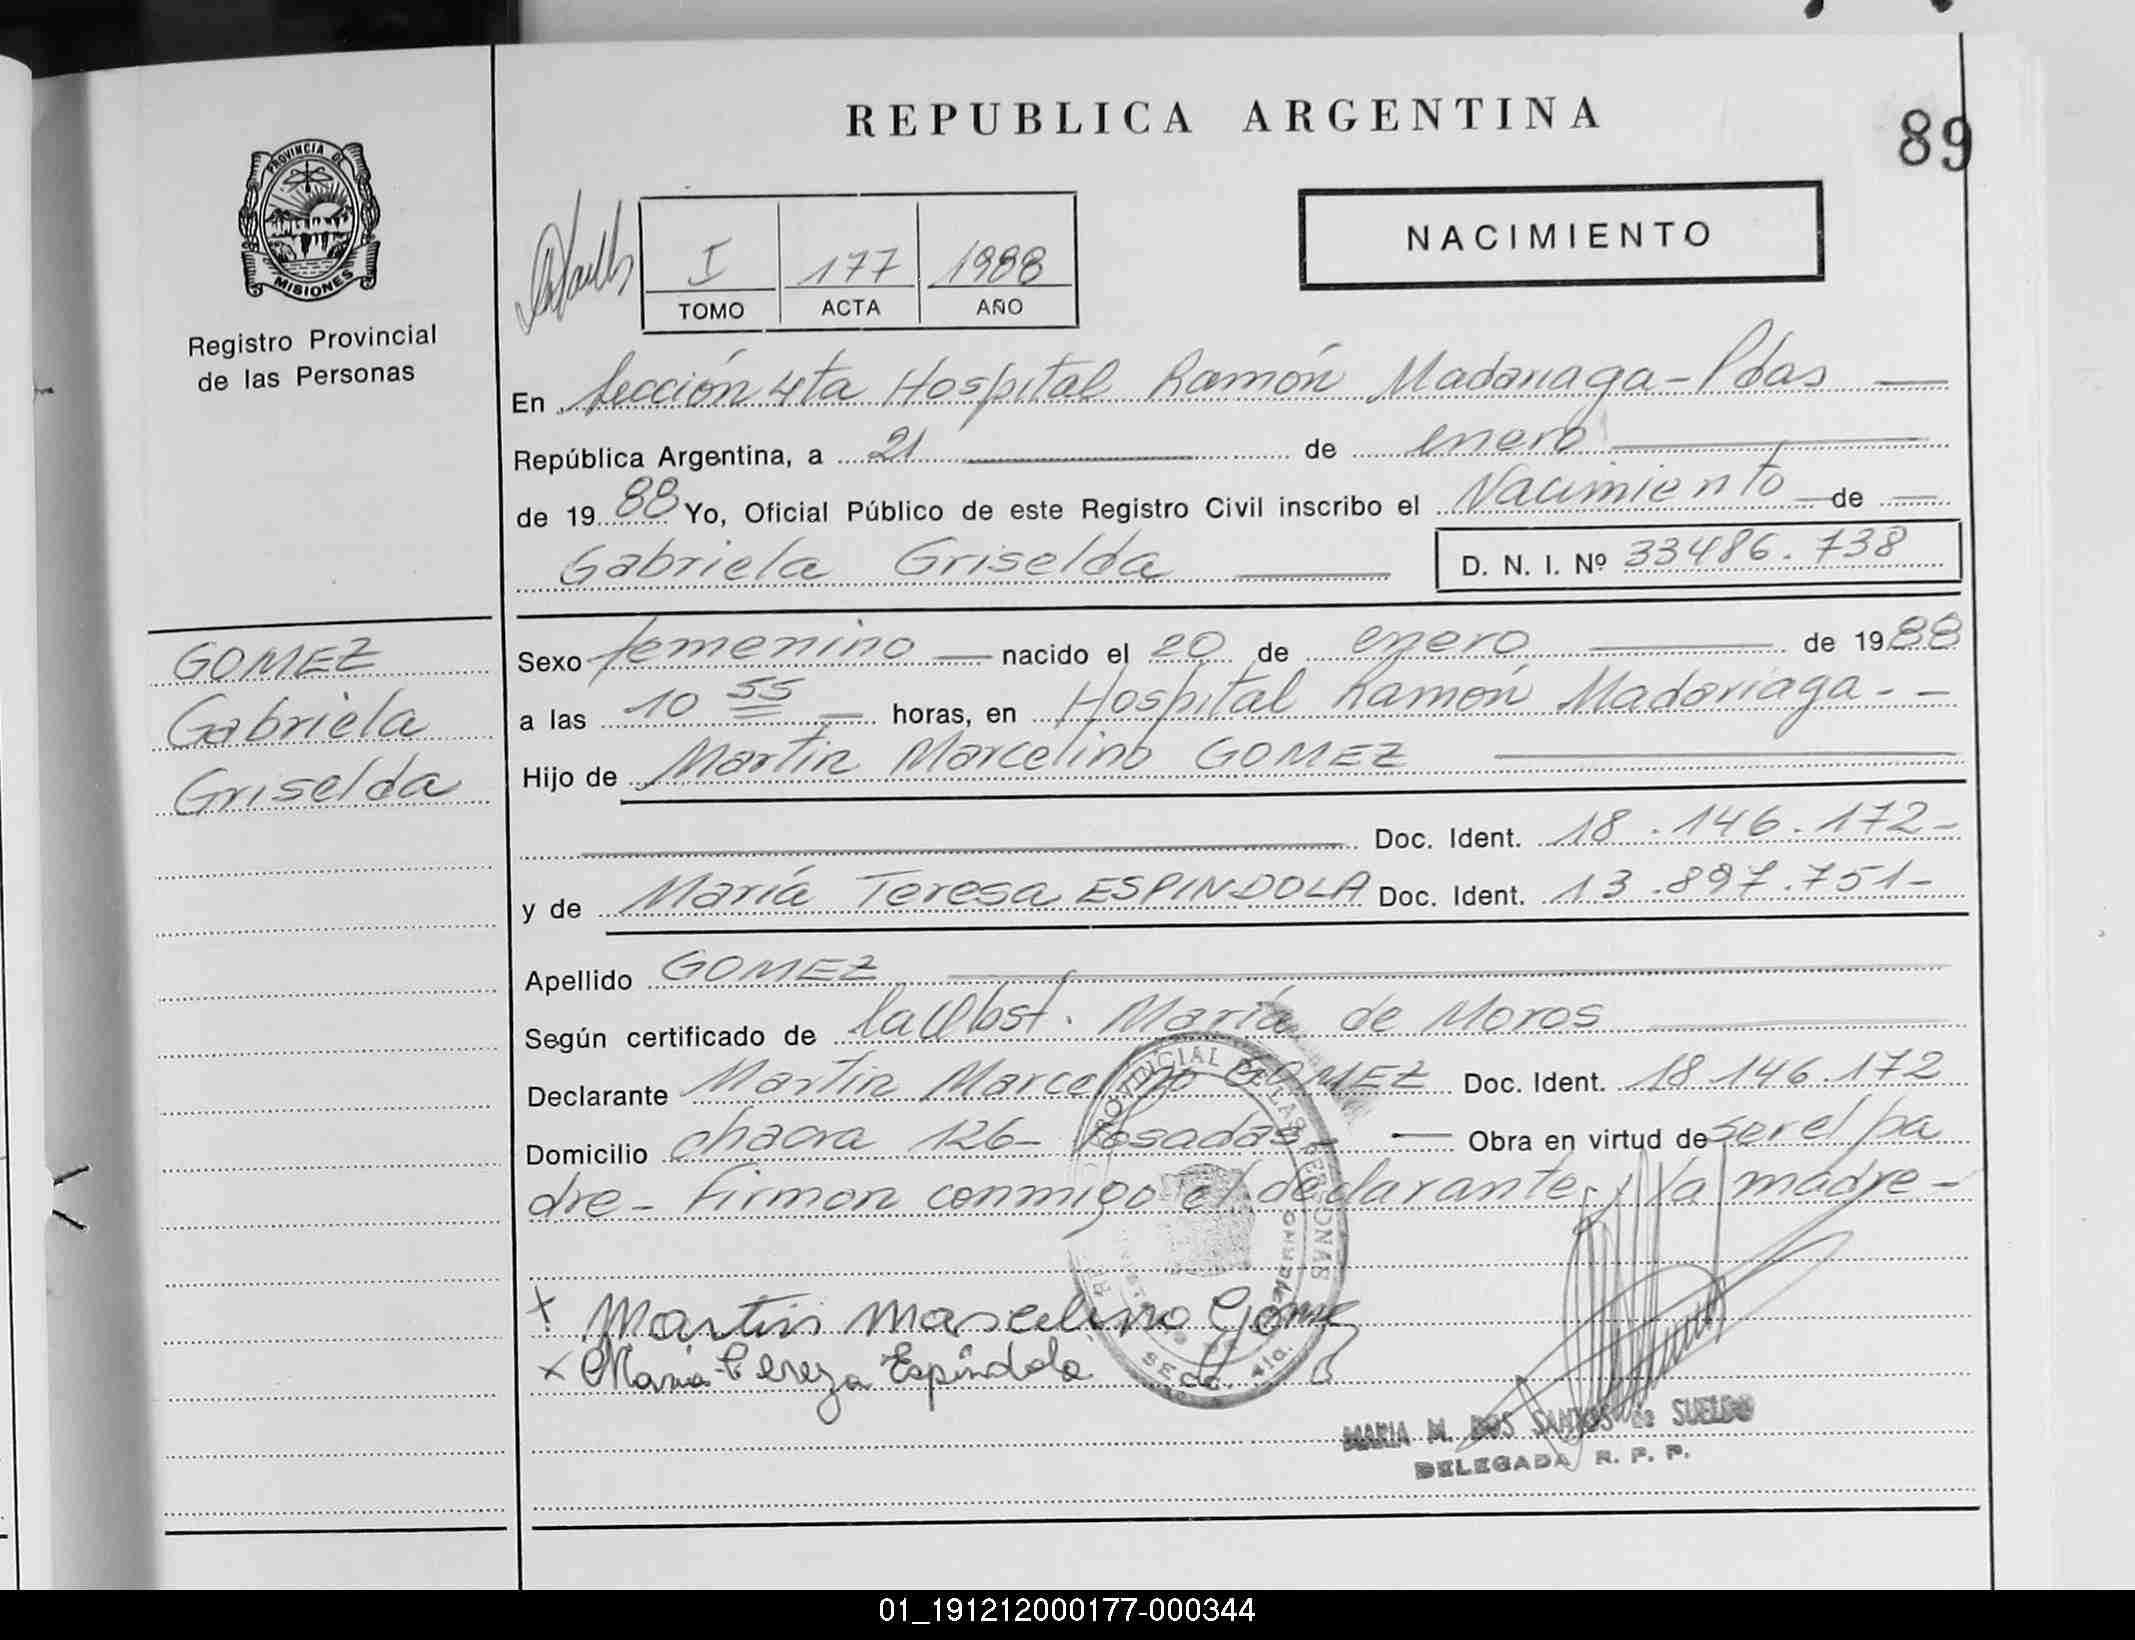 REPUBLICA ARGENTINA
89
PROVINCIA DE
MISIONES
Registro Provincial
de las Personas
I 177 1988
TOMO ACTA AÑO
NACIMIENTO
En Sección 4ta Hospital Ramón Madariaga - Pdas
República Argentina, a 21 de enero
de 1988 Yo, Oficial Público de este Registro Civil inscribo el Nacimiento de
Gabriela Griselda D. N. I. Nº 33486.738
GOMEZ
Gabriela
Griselda
Sexo femenino nacido el 20 de enero de 1988
a las 10 55 horas, en Hospital Ramón Madariaga - -
Hijo de Martin Marcelino GOMEZ
Doc. Ident. 18.146.172-
y de María Teresa ESPINDOLA Doc. Ident. 13.897.751-
Apellido GOMEZ
Según certificado de la Obst. María de Moros
Declarante Martin Marcelino GOMEZ Doc. Ident. 18.146.172
Domicilio chacra 126- Posadas- Obra en virtud de ser el pa
dre - Firman conmigo el declarante y la madre -
x Martin Marcelino Gomez
x Maria Tereza Espíndola
MARIA M. DOS SANTOS de SUELDO
DELEGADA R. P. P.
01_191212000177-000344